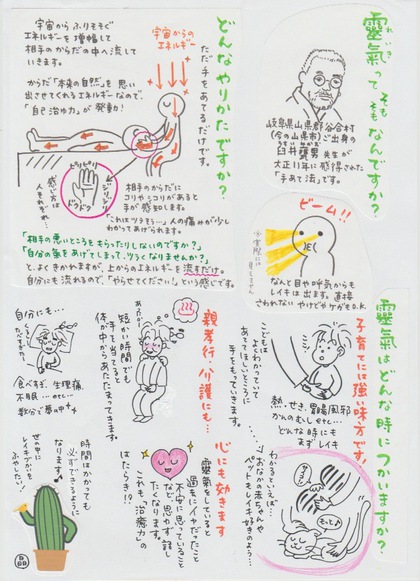 靈氣って そもそも なんですか?
れいき
岐阜県山県郡谷合村
(今の山県市)ご出身の
臼井甕男 先生が
大正11年に感得された
「手あて法」です。
ビーム!!
なんと目や呼気からも
レイキは出ます。直接
さわれない やけどやケガもO.K
どんなやりかたですか?
ただ手をあてるだけです。
宇宙からの
エネルギー
宇宙から ふりそそぐ
エネルギーを増幅して
相手のからだの中へ流して
いきます。
からだ「本来の自然」を思い
出させてくれるエネルギーなので、
「自己治ゆ力」が発動!
ピリピリ
ジリジリ
ドクドク
感じ方は
人それぞれ。
相手のからだに
コリやシコリがあると
手が感知します。
「これはツラそう…」人の痛みが少し
わかってあげられます。
「相手の悪いところをもらったりしないのですか?」
「自分の氣をあげてしまって、ツラくなりませんか?」
と、よくきかれますが、上からのエネルギーを流すだけ。
自分にも流れるので、「やらせてください!」という感じです。
靈氣はどんな時につかいますか?
子育てには強い味方です。
こどもは
よくわかっていて
あててほしいところに
手をもっていきます。
熱、せき、胃腸風邪
かんのむし etc…
どんな時にも
まず レイキ
わかるといえば…
おなかの赤ちゃんや
ペットもレイキ好きのよう…
親孝行・介護にも…
短かい時間でも
手を当てると
体が中からあたたまってきます。
自分にも…
食べすぎ、生理痛
不眠…etc…
数分で夢の中♪
心にも効きます
靈氣をしていると
過去にイヤだったこと
不安に思っていること
など、思わず話し
たくなります。
これも、治癒力の
はたらき!?
時間はかかっても
必ずできるように
なります♪
せの中に
レイキつかいを
ふやしたい!